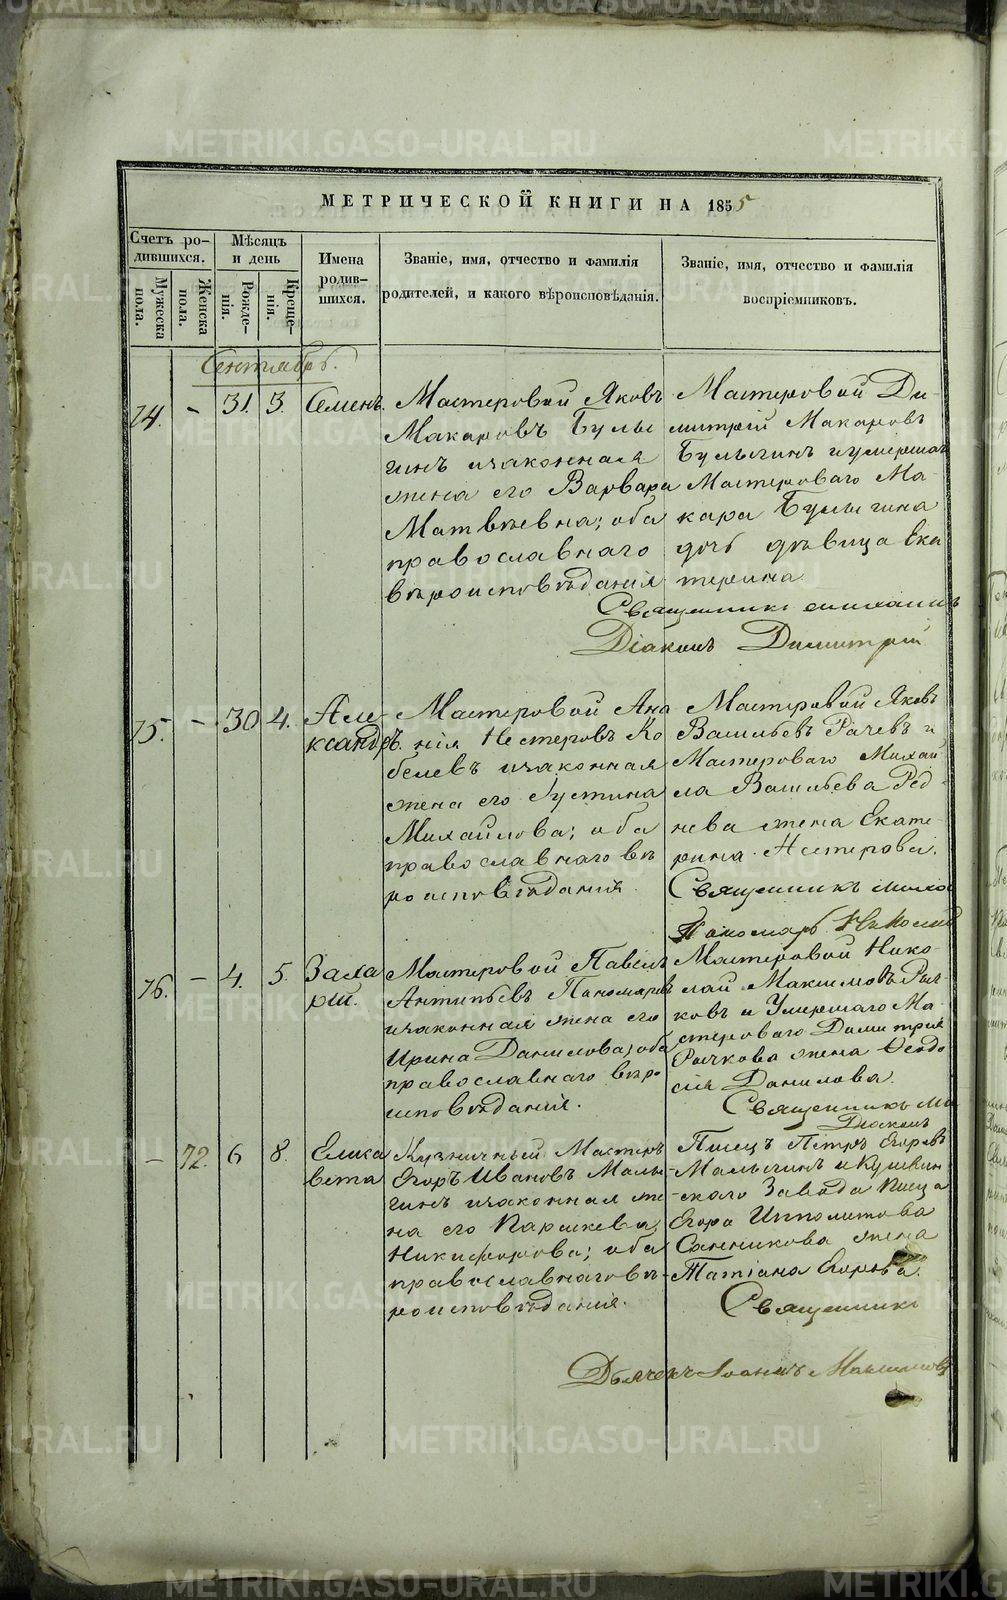 МЕТРИЧЕСКОЙ КНИГИ НА 1855
Счетъ ро-
дившихся.
Мужеска
пола.
Женска
пола.
Мѣсяцъ
и день
Рожде-
нія.
Креще-
нія.
Имена
родив-
шихся.
Званіе, имя, отчество и фамилія
родителей, и какого вѣроисповѣданія.
Званіе, имя, отчество и фамилія
воспріемниковъ.
Сентябрь.
74. - 31. 3. Семенъ.
Мастеровой Яковъ
Макаровъ Булы
гинъ изаконная
жена его Варвара
Матвѣевна; оба
православнаго
вѣроисповѣданія
Мастеровой Ди-
митрій Макаровъ
Булыгинъ иумершаго
Мастероваго Ма-
кара Булыгина
дочь дѣвица Ека
терина
Священникъ
Діаконъ Димитрій
75. - 30 4. Але-
ксандръ.
Мастеровой Ана
нія Нестеровъ Ко
белевъ изаконная
жена его Іустина
Михайлова; оба
православнаго вѣ
роисповѣданія
Мастеровой Яковъ
Васильевъ Рачевъ и
Мастероваго Михай
ла Васильева Ред-
нева жена Екате-
рина Нестерова.
Священникъ
Пономарь
76. - 4. 5. Заха
рій.
Мастеровой Павелъ
Антипьевъ Пономаревъ
изаконная жена его
Ирина Данилова; оба
православнаго вѣро
исповѣданія.
Мастеровой Нико-
лай Максимовъ Рыч
ковъ и Умершаго Ма
стероваго Димитрія
Рычкова жена Ѳеодо
сія Данилова.
Священникъ
Діаконъ
- 72. 6 8. Елиса
вета
Кузничный Мастеръ
Егоръ Ивановъ Малы-
гинъ изаконная же
на его Параскева
Никифорова; оба
православнаго вѣ-
роисповѣданія.
Писецъ Петръ Егоровъ
Малыгинъ и Кушвин
скаго Завода Писца
Егора Ипполитова
Санникова жена
Татіана Егорова.
Священникъ
Дьячекъ Іоаннъ
METRIKI.GASO-URAL.RU